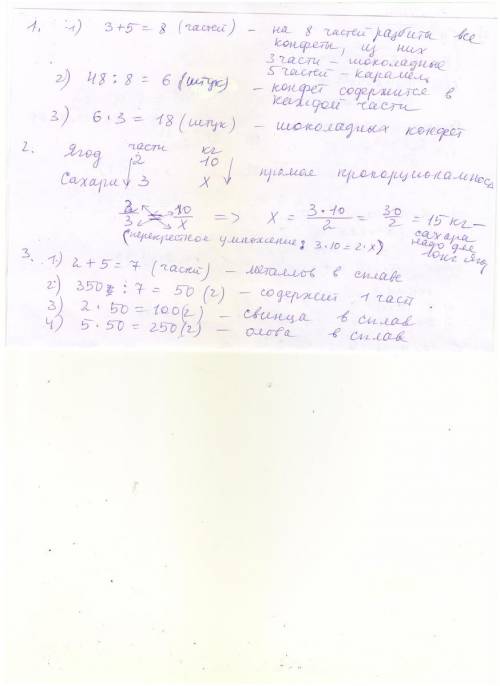 1. 1) 3+5 = 8 (частей) – на 8 частей разбиты все
конфеты, из них
3 части – шоколадные
5 частей – карамель
2) 48 : 8 = 6 (штук) – конфет содержится в
каждой части
3) 6 · 3 = 18 (штук) – шоколадных конфет
2. части кг
Ягод 2 10
Сахара 3 x прямая пропорциональность
2/3 = 10/x => x = 3·10/2 = 30/2 = 15 кг –
сахара
надо для
10 кг ягод
(перекрестное умножение: 3·10 = 2·x)
3. 1) 2+5 = 7 (частей) – металлов в сплаве
2) 350 : 7 = 50 (г) – содержит 1 част.
3) 2 · 50 = 100 (г) – свинца в сплав
4) 5 · 50 = 250 (г) – олова в сплав